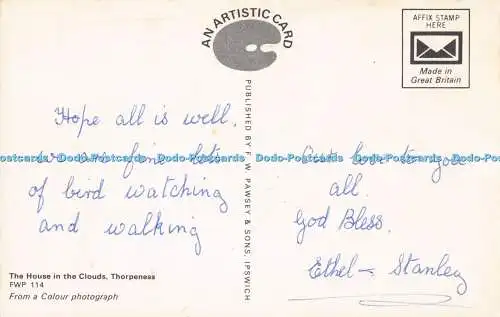 AN ARTISTIC CARD
AFFIX STAMP
HERE
Made in
Great Britain
PUBLISHED BY F. W. PAWSEY & SONS, IPSWICH
Hope all is well.
we are fine lots
of bird watching
and walking
Our love to you
all.
God Bless.
Ethel – Stanley
Dodo-Postcards Dodo-Postcards Dodo-Postcards Dodo-Postcards Dodo-Postcards
The House in the Clouds, Thorpeness
FWP 114
From a Colour photograph